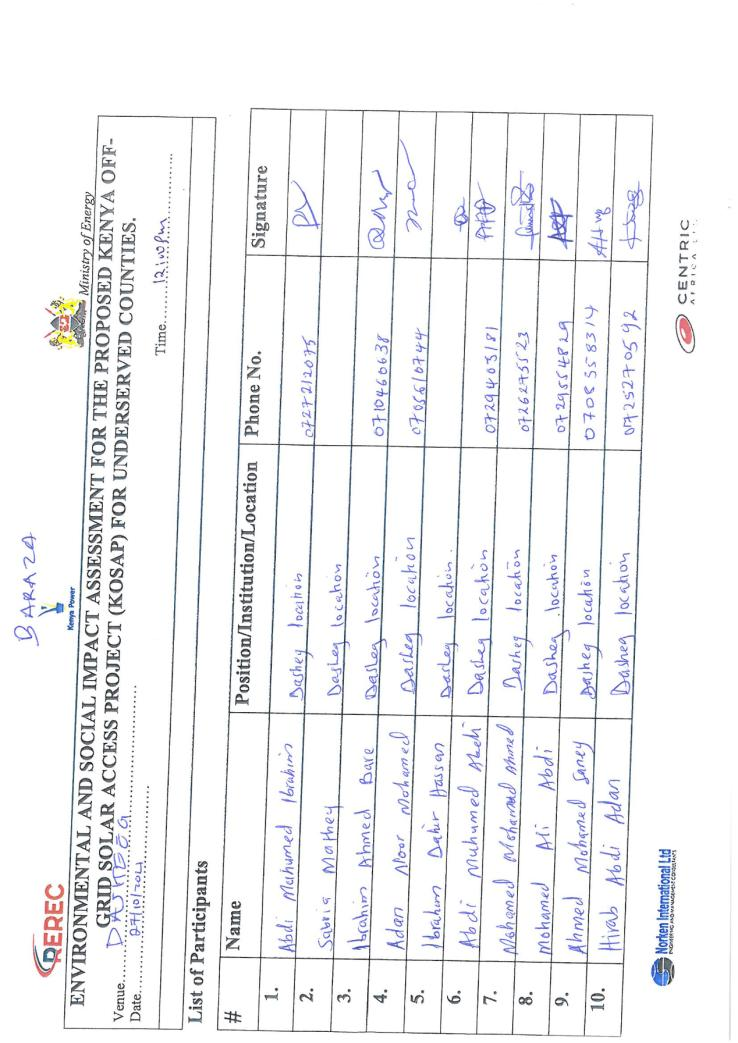 BARAZA
REREC
Kenya Power
Ministry of Energy
ENVIRONMENTAL AND SOCIAL IMPACT ASSESSMENT FOR THE PROPOSED KENYA OFF-
GRID SOLAR ACCESS PROJECT (KOSAP) FOR UNDERSERVED COUNTIES.
Venue....DASHEEG
Date....27/10/2021
Time....12:00pm
List of Participants
# Name Position/Institution/Location Phone No. Signature
1. Abdi Muhumed Ibrahim Dasheg location 0727212075
2. Sabria Mathey Dasheg location
3. Ibrahim Ahmed Bare Dasheg location 0710460638
4. Adan Noor Mohamed Dasheg location 0705610744
5. Ibrahim Dahir Hassan Dasheg location.
6. Abdi Muhumed Abdi Dasheg location 0729403181
7. Mohamed Mohamed Ahmed Dasheg location 0726275523
8. Mohamed Ali Abdi Dasheg location 0729554829
9. Ahmed Mohamed Saney Dasheg location 0708558314
10. Hirab Abdi Adan Dasheg location 0725270592
Norken International Ltd
ENGINEERING AND MANAGEMENT CONSULTANTS
CENTRIC
AFRICA LTD